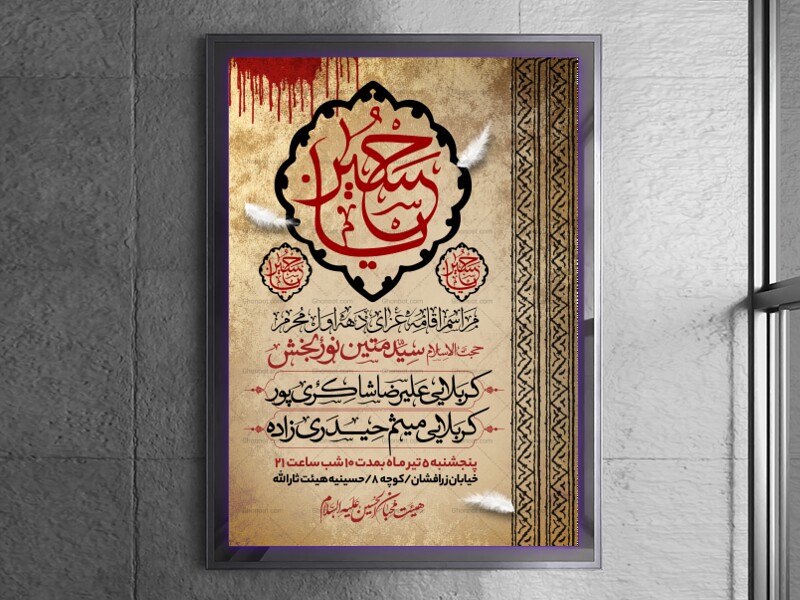 یا حسین
یا حسین
یا حسین
مراسم اقامه عزای دهه اول محرم
حجت الاسلام سید متین نوربخش
کربلایی علیرضا شاکری پور
کربلایی میثم حیدری زاده
پنجشنبه ۵ تیر ماه بمدت ۱۰ شب ساعت ۲۱
خیابان زرافشان / کوچه ۸ / حسینیه هیئت ثارالله
هیئت محبان الحسین علیه السلام